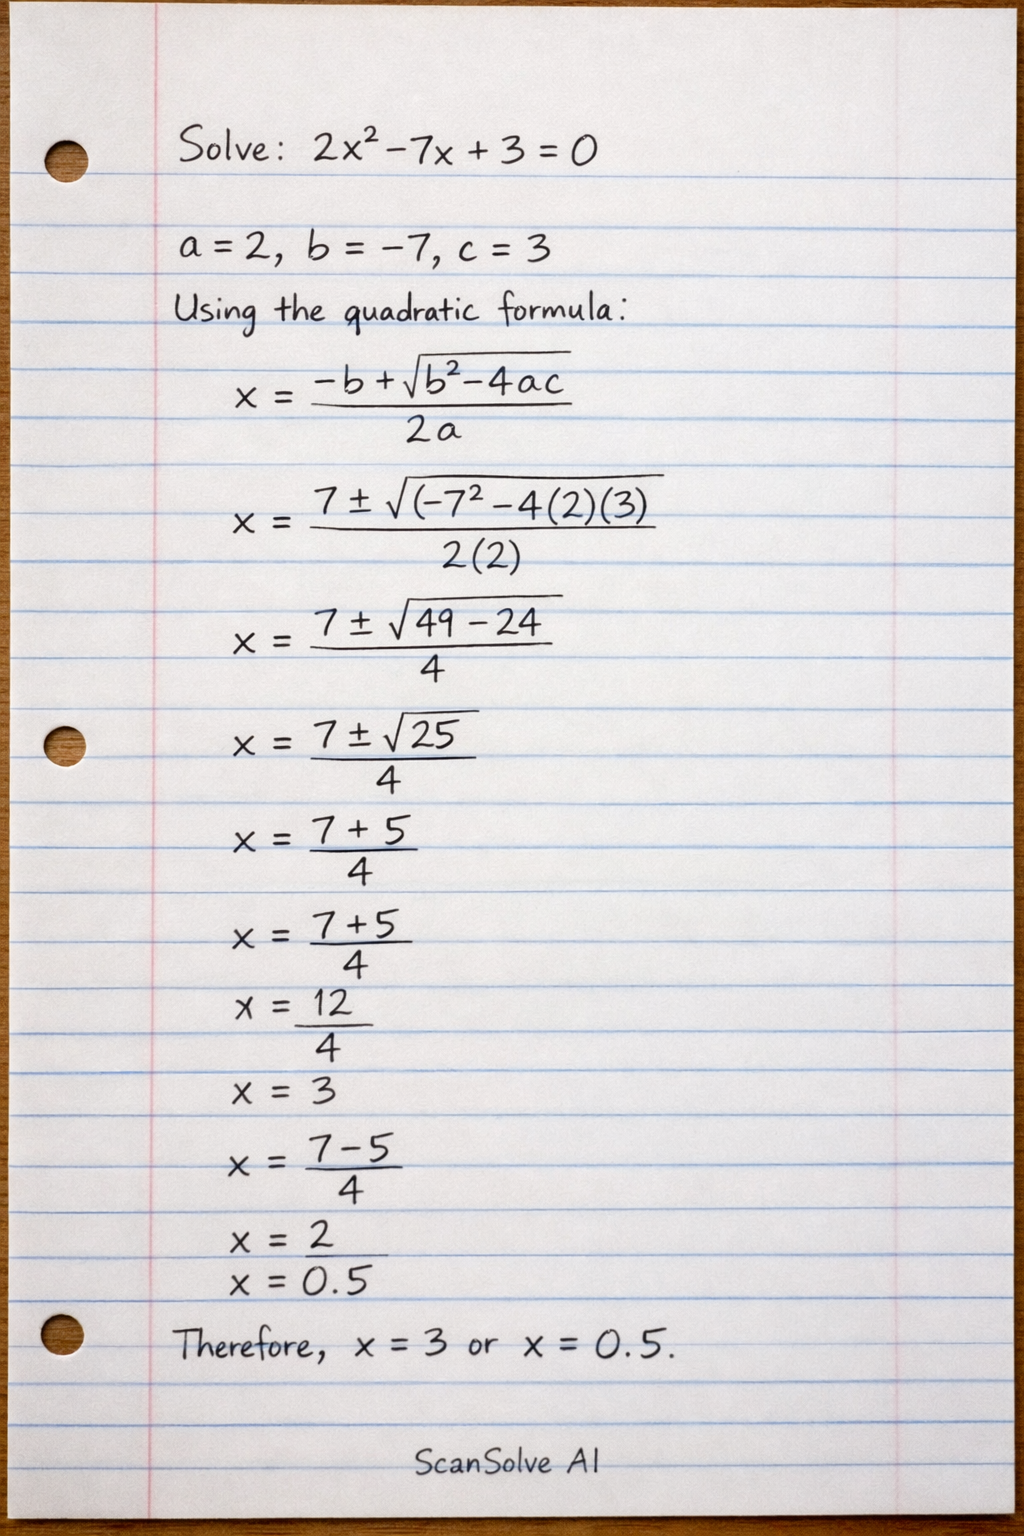 Solve: 2x² - 7x + 3 = 0
a = 2, b = -7, c = 3
Using the quadratic formula:
x = (-b + √(b² - 4ac)) / 2a
x = 7 ± √((-7² - 4(2)(3) / 2(2)
x = 7 ± √(49 - 24) / 4
x = 7 ± √25 / 4
x = 7 + 5 / 4
x = 7 + 5 / 4
x = 12 / 4
x = 3
x = 7 - 5 / 4
x = 2
x = 0.5
Therefore, x = 3 or x = 0.5.
ScanSolve AI